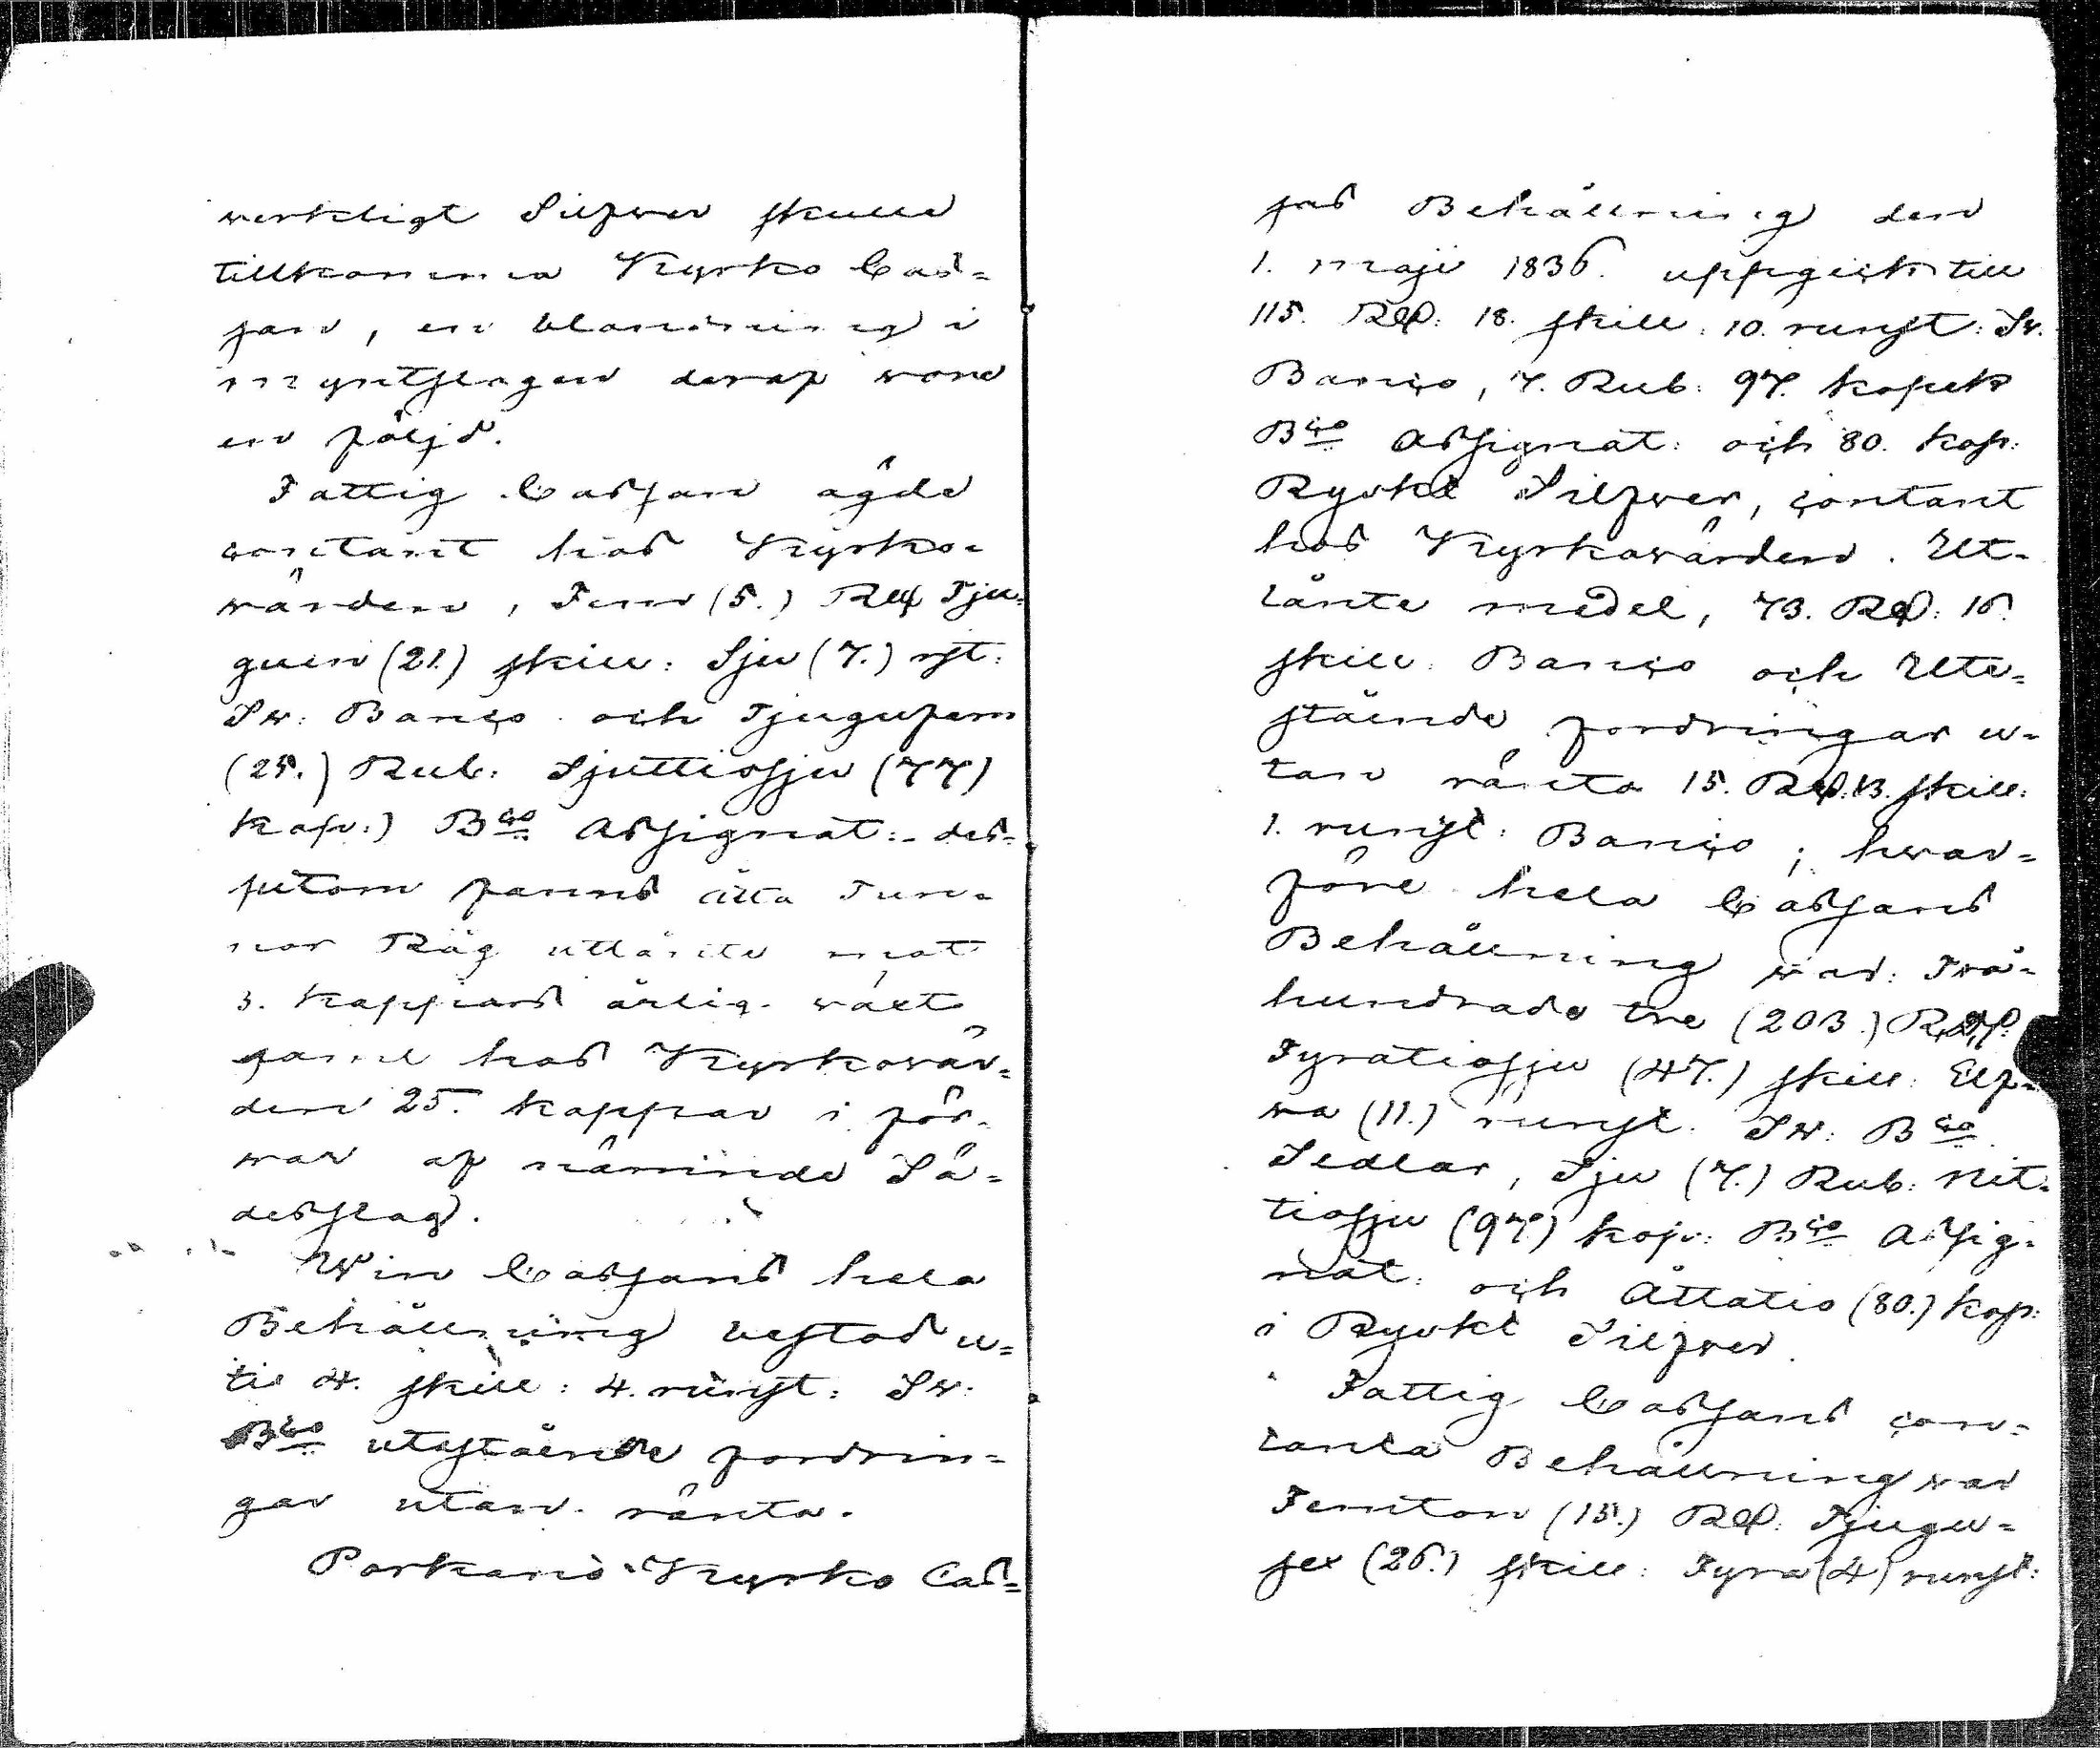 werkligt Silfwer skulle
tillkomma Kyrko Cas=
san, en blandning i
myntslagen deraf wore
en följd.
Fattig Cassan ägde
contant hos Kyrko=
wärden, Fem (5.) Rd Tju=
guen (21.) skill: Sju (7.) rst:
Sw: Banco och Tjugufem
(25.) Rub: Sjuttiosju (77)
kop:) Bco Assignat: des=
sutom fanns åtta Tun=
nor Råg utlånte mot
3. kappars årlig wäxt
samt hos Kyrkowär=
den 25. kappar i för=
war af nämnde Sä=
desslag.
Win Cassans hela
Behållning bestod u=
ti 4. skill: 4. runst: Sw:
Bco utestående fordrin=
gar utan ränta.
Parkano Kyrko Cas=
sas Behållning den
1. maji 1836. uppgick till
115. Rd: 18. skill: 10. runst: Sw.
Banco, 7. Rub: 97. kopek
Bco Assignat: och 80. kop:
Ryskt Silfwer, contant
hos Kyrkowärden. Ut=
lånte medel, 73. Rd: 16.
skill: Banco och Ute=
stående fordringar u=
tan ränta 15. Rd: 13. skill:
1. runst: Banco; hwar=
före hela Cassans
Behållning war: Twå=
hundrade tre (203.) Rd:
Fyratiosju (47.) skill: Elf=
wa (11.) runst. Sw: Bco
Sedlar, Sju (7.) Rub: Nit=
tiosju (97.) kop: Bco Assig=
nat: och Åttatio (80.) kop:
i Ryskt Silfwer.
Fattig Cassans con=
tanta Behållning war
Femton (15.) Rd: Tjugu=
sex (26.) skill: Fyra (4) runst: